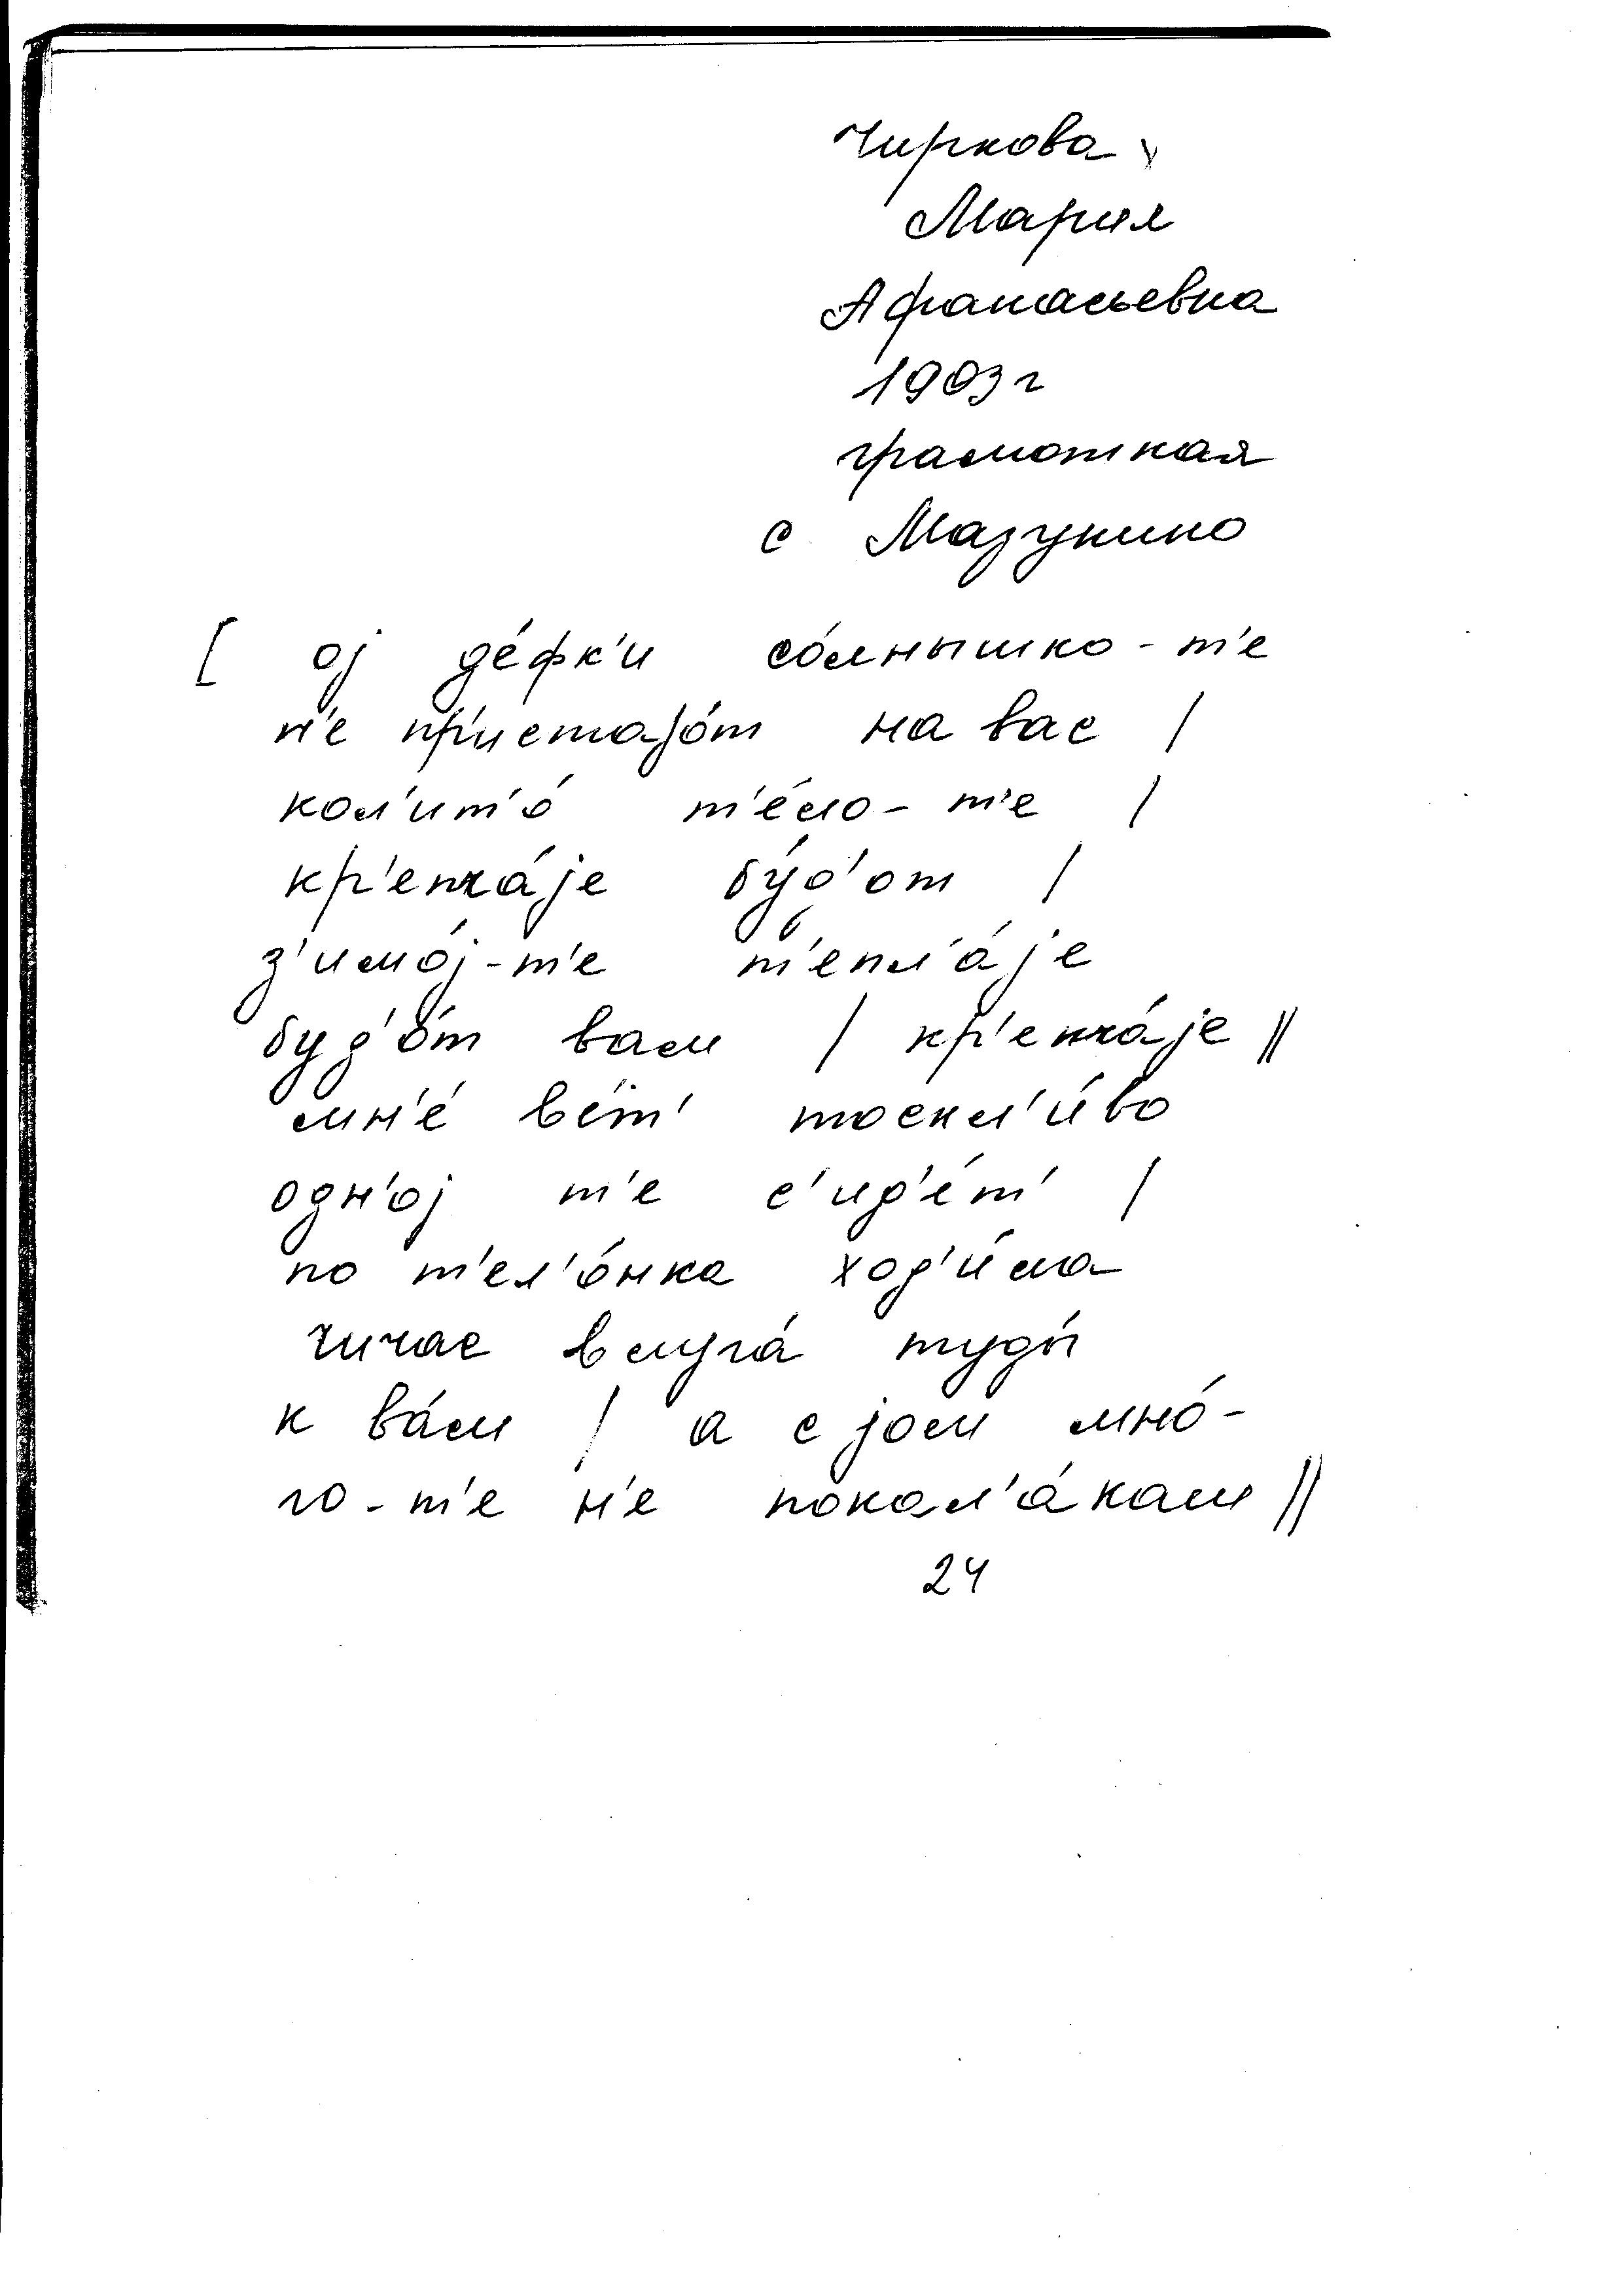 Чиркова
Мария
Афанасьевна
1903 г
грамотная
с Мазунино
[ ој де́фк'и со́лнышко-т'е
н'е пр'истајо́т на вас |
кол'ит'о́ т'е́ло-т'е |
кр'епча́је бу́д'от |
з'имо́ј-т'е т'епл'а́је
буд'о́т вам | кр'епча́је ||
мн'е́ ве́т' тоскл'и́во
одн'ој т'е с'ид'е́т' |
по т'ел'о́нка ход'и́ла
чичас в луга́ туды́
к ва́м | а с јом мно́-
го-т'е н'е покал'а́кам ||
24